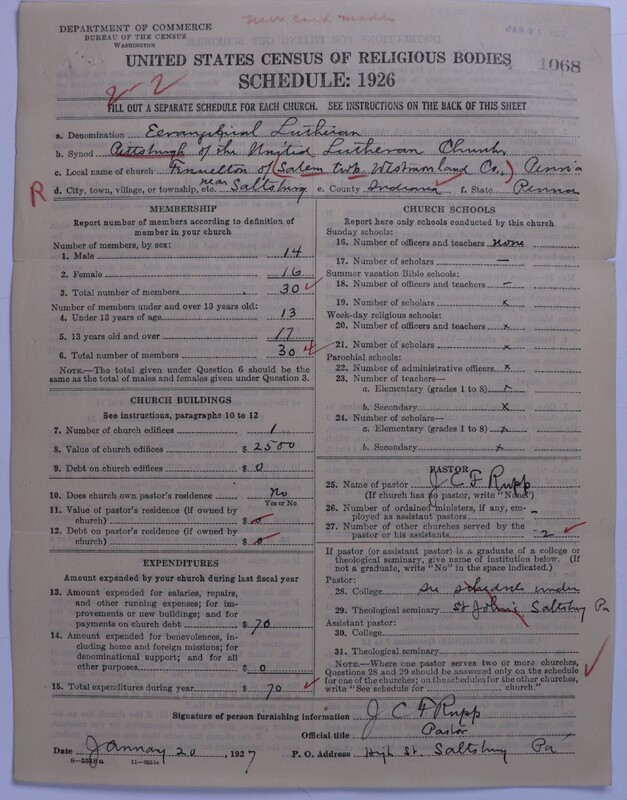 New card made
DEPARTMENT OF COMMERCE
BUREAU OF THE CENSUS
WASHINGTON
UNITED STATES CENSUS OF RELIGIOUS BODIES
1068
SCHEDULE: 1926
2-2
FILL OUT A SEPARATE SCHEDULE FOR EACH CHURCH. SEE INSTRUCTIONS ON THE BACK OF THIS SHEET
a. Denomination Evangelical Lutheran
b. Synod Pittsburgh of the United Lutheran Church
c. Local name of church (Salem twp. Co.,) Penn'a
R d. City, town, village, or township, etc. near Saltsburg e. County Indiana f. State Penna
MEMBERSHIP
Report number of members according to definition of
member in your church
Number of members, by sex:
1. Male 14
2. Female 16
3. Total number of members 30
Number of members under and over 13 years old:
4. Under 13 years of age 13
5. 13 years old and over 17
6. Total number of members 30 4
NOTE.—The total given under Question 6 should be
same as the total of males and females given under Question 3.
CHURCH BUILDINGS
See instructions, paragraphs 10 to 12
7. Number of church edifices 1
8. Value of church edifices $ 2500
9. Debt on church edifices $ 0
10. Does church own pastor's residence No
Yes or No
11. Value of pastor's residence (if owned by
church) $ 0
12. Debt on pastor's residence (if owned by
church) $ 0
EXPENDITURES
Amount expended by your church during last fiscal year
13. Amount expended for salaries, repairs,
and other running expenses; for im-
provements or new buildings; and for
payments on church debt $ 70
14. Amount expended for benevolences, in-
cluding home and foreign missions; for
denominational support; and for all
other purposes $ 0
15. Total expenditures during year $ 70
CHURCH SCHOOLS
Report here only schools conducted by this church
Sunday schools:
16. Number of officers and teachers none
17. Number of scholars —
Summer vacation Bible schools:
18. Number of officers and teachers —
19. Number of scholars x
Week-day religious schools:
20. Number of officers and teachers x
21. Number of scholars x
Parochial schools:
22. Number of administrative officers x
23. Number of teachers—
a. Elementary (grades 1 to 8) x
b. Secondary x
24. Number of scholars—
a. Elementary (grades 1 to 8) x
b. Secondary x
PASTOR
25. Name of pastor J C F Rupp
(If church has no pastor, write "None")
26. Number of ordained ministers, if any, em-
ployed as assistant pastors –
27. Number of other churches served by the
pastor or his assistants 2
If pastor (or assistant pastor) is a graduate of a college or
theological seminary, give name of institution below. (If
not a graduate, write "No" in the space indicated.)
Pastor:
28. College See schedule under
29. Theological seminary St John's Saltsburg Pa
Assistant pastor:
30. College
31. Theological seminary
NOTE.—Where one pastor serves two or more churches,
Questions 28 and 29 should be answered only on the schedule
for one of the churches; on the schedules for the other churches,
write "See schedule for church."
Signature of person furnishing information J C F Rupp
Official title Pastor
Date January 20, 1927 P. O. Address High St. Saltsburg Pa